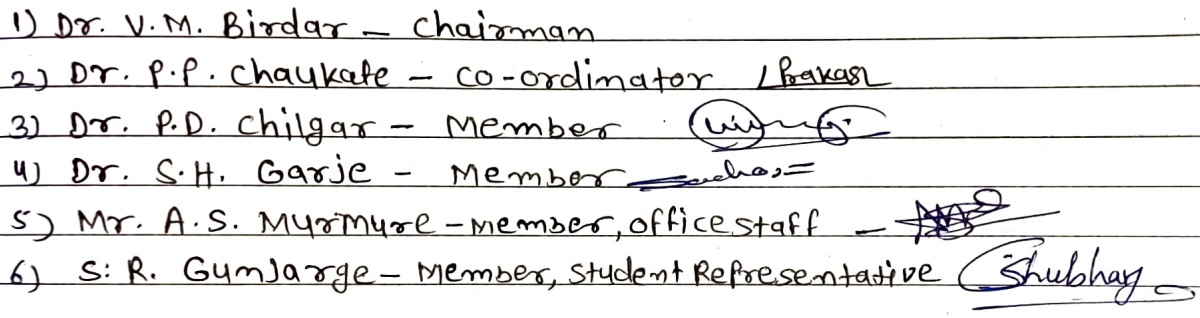 1) Dr. V.M. Birdar - Chairman
2) Dr. P.P. Chaukate - CO-ordinator Prakash
3) Dr. P.D. Chilgar - Member
4) Dr. S.H. Garje - Member
5) Mr. A.S. Murmure - Member, office staff -
6) S. R. Gunjarge - Member, Student Representative Shubham